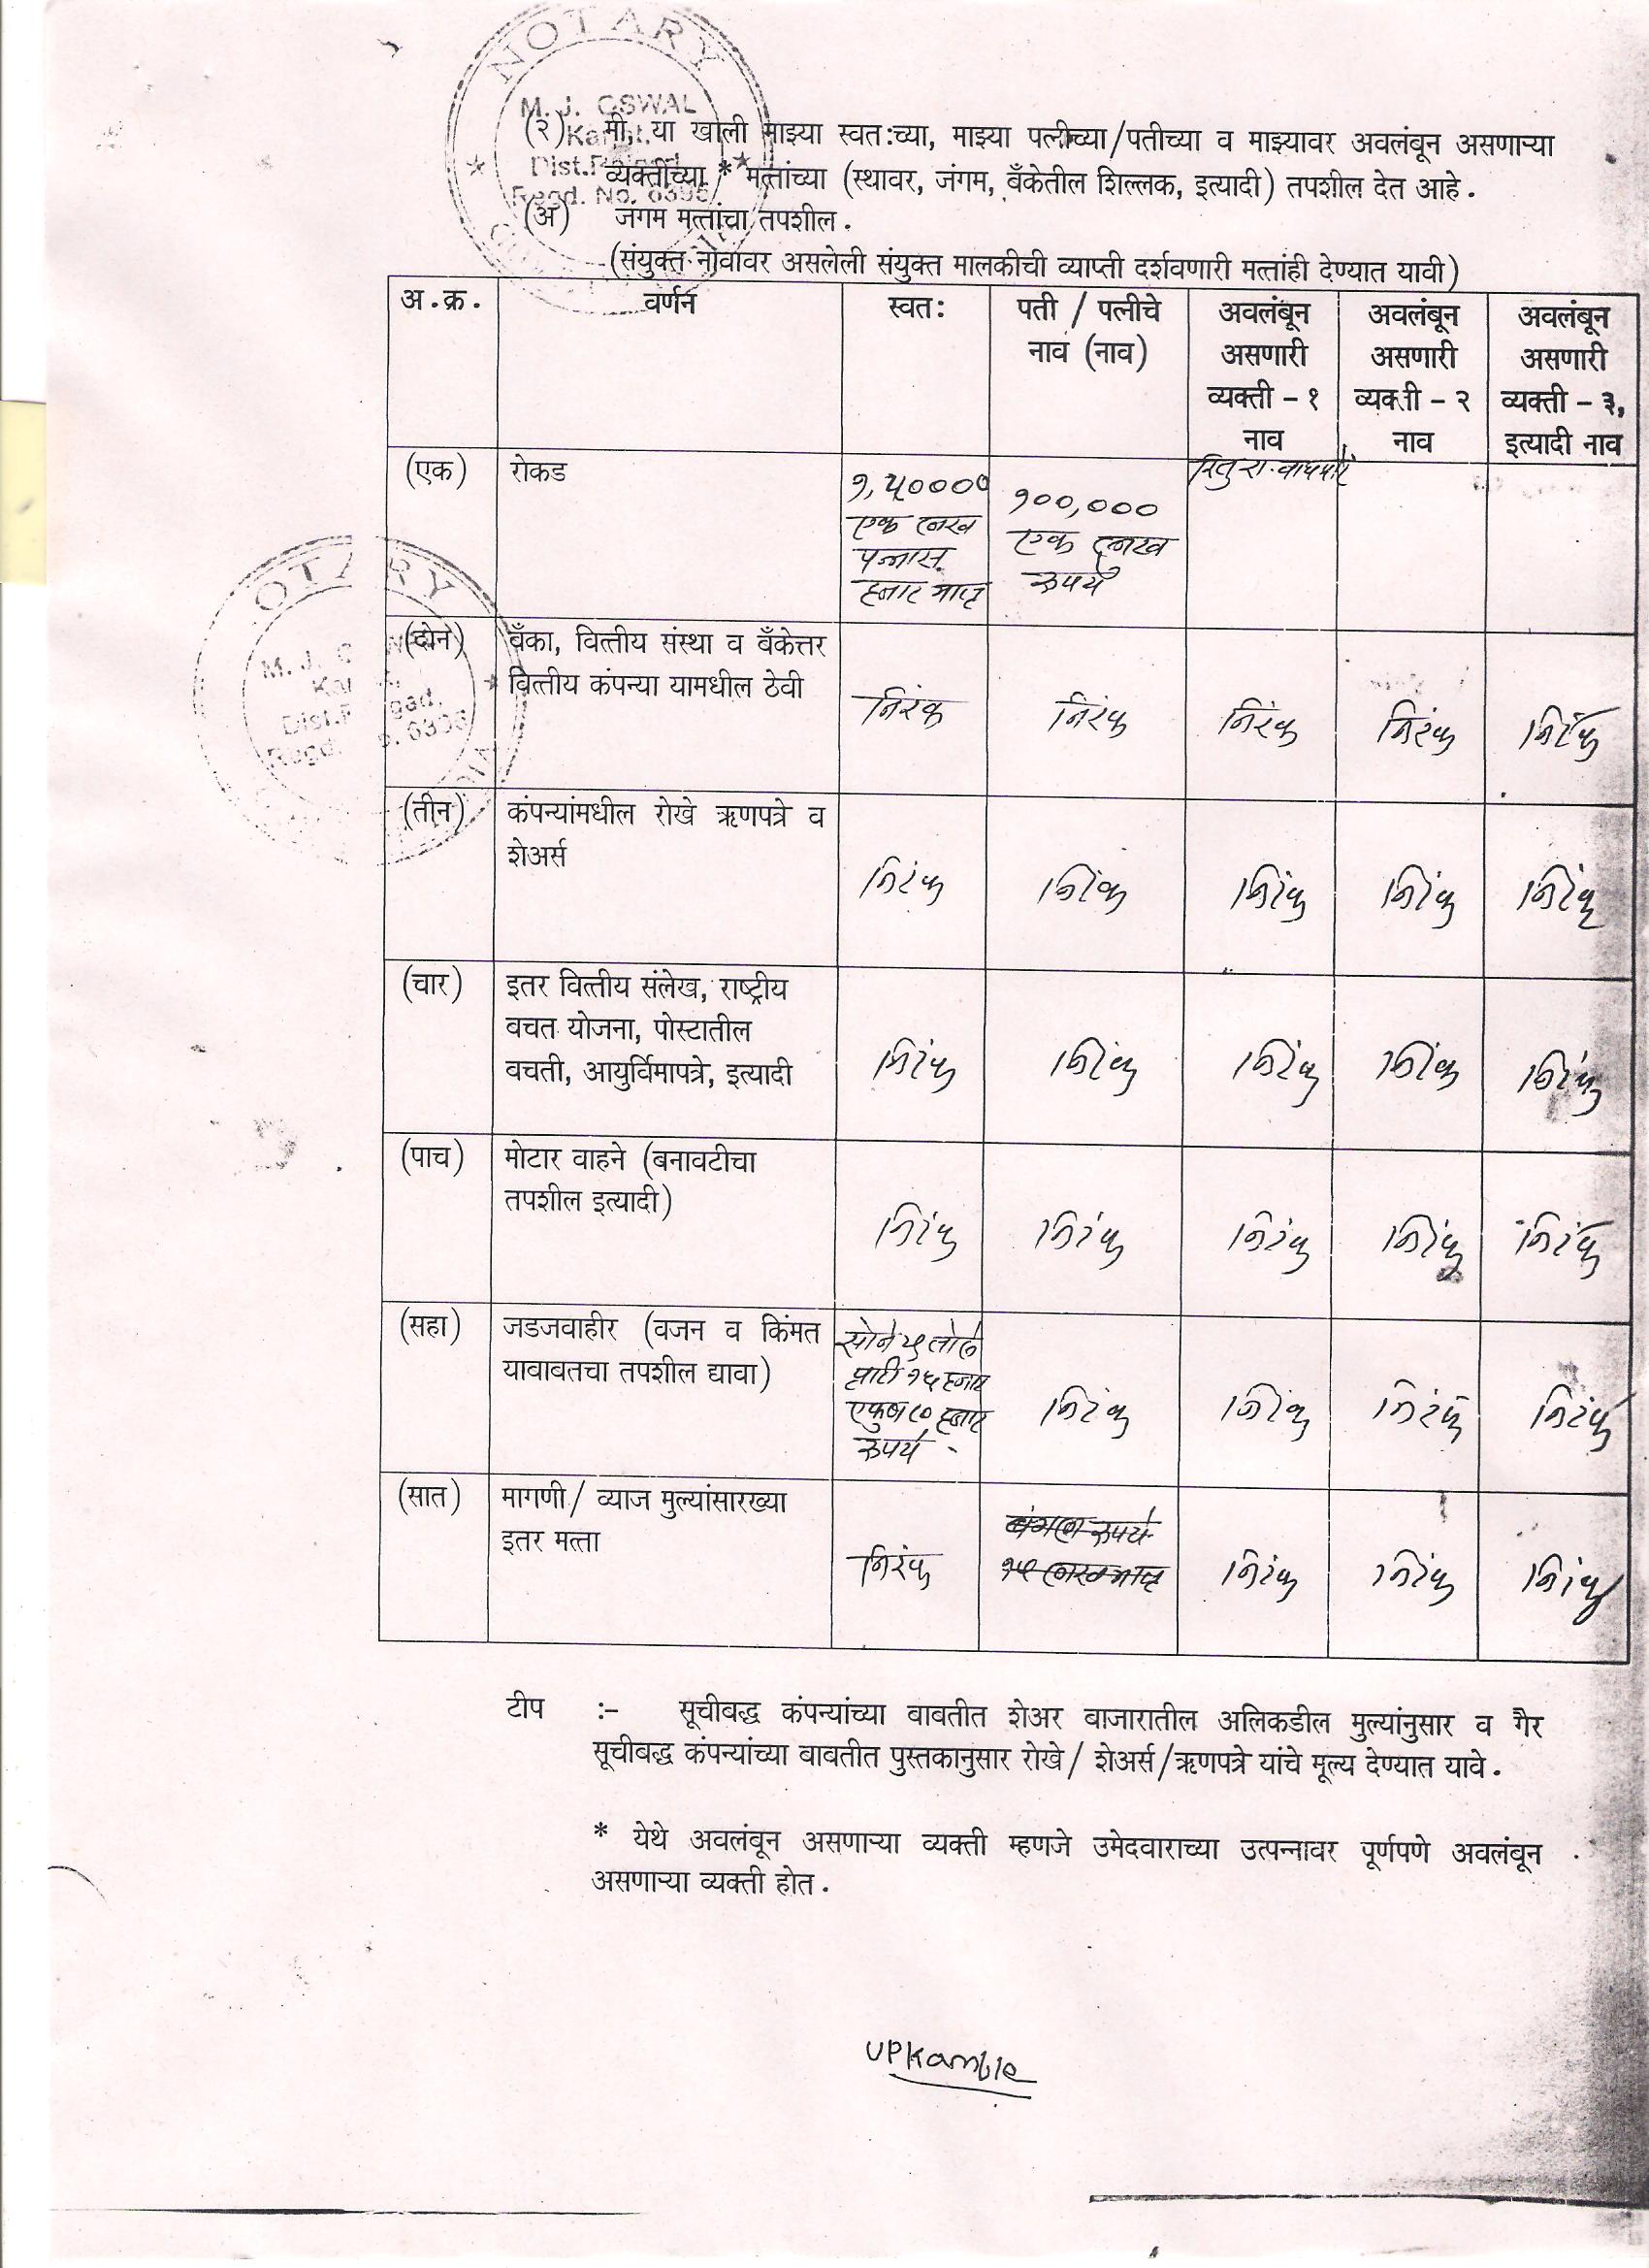 NOTARY
M. J. OSWAL
(२) मी, या खाली माझ्या स्वत:च्या, माझ्या पत्नीच्या/पतीच्या व माझ्यावर अवलंबून असणाऱ्या
व्यक्तींच्या * मत्तांच्या (स्थावर, जंगम, बँकेतील शिल्लक, इत्यादी) तपशील देत आहे.
Regd. No. 6395
(अ) जंगम मत्तांचा तपशील.
(संयुक्त नांवावर असलेली संयुक्त मालकीची व्याप्ती दर्शवणारी मत्तांही देण्यात यावी)
अ.क्र. वर्णन स्वत: पती / पत्नीचे अवलंबून अवलंबून अवलंबून
नाव (नाव) असणारी असणारी असणारी
व्यक्ती - १ व्यक्ती - २ व्यक्ती - ३,
नाव नाव इत्यादी नाव
(एक) रोकड १,५०००० १००,०००
एक लाख एक लाख
पन्नास रुपये
हजार मात्र
NOTARY
(दोन) बँका, वित्तीय संस्था व बँकेत्तर
वित्तीय कंपन्या यामधील ठेवी निरंक निरंक निरंक निरंक निरंक
(तीन) कंपन्यांमधील रोखे ऋणपत्रे व
शेअर्स निरंक निरंक निरंक निरंक निरंक
(चार) इतर वित्तीय संलेख, राष्ट्रीय
वचत योजना, पोस्टातील
वचती, आयुर्विमापत्रे, इत्यादी निरंक निरंक निरंक निरंक निरंक
(पाच) मोटार वाहने (बनावटीचा
तपशील इत्यादी) निरंक निरंक निरंक निरंक निरंक
(सहा) जडजवाहीर (वजन व किंमत सोने ५ तोळे
यावाबतचा तपशील द्यावा) प्रति १५ हजार
हजार निरंक निरंक निरंक निरंक
रुपये
(सात) मागणी/ व्याज मुल्यांसारख्या बंगला रुपये
इतर मत्ता निरंक १५ लाख मात्र निरंक निरंक निरंक
टीप :- सूचीबद्ध कंपन्यांच्या बाबतीत शेअर बाजारातील अलिकडील मुल्यांनुसार व गैर
सूचीबद्ध कंपन्यांच्या बाबतीत पुस्तकानुसार रोखे/ शेअर्स/ऋणपत्रे यांचे मूल्य देण्यात यावे.
* येथे अवलंबून असणाऱ्या व्यक्ती म्हणजे उमेदवाराच्या उत्पन्नावर पूर्णपणे अवलंबून
असणाऱ्या व्यक्ती होत.
UPKamble